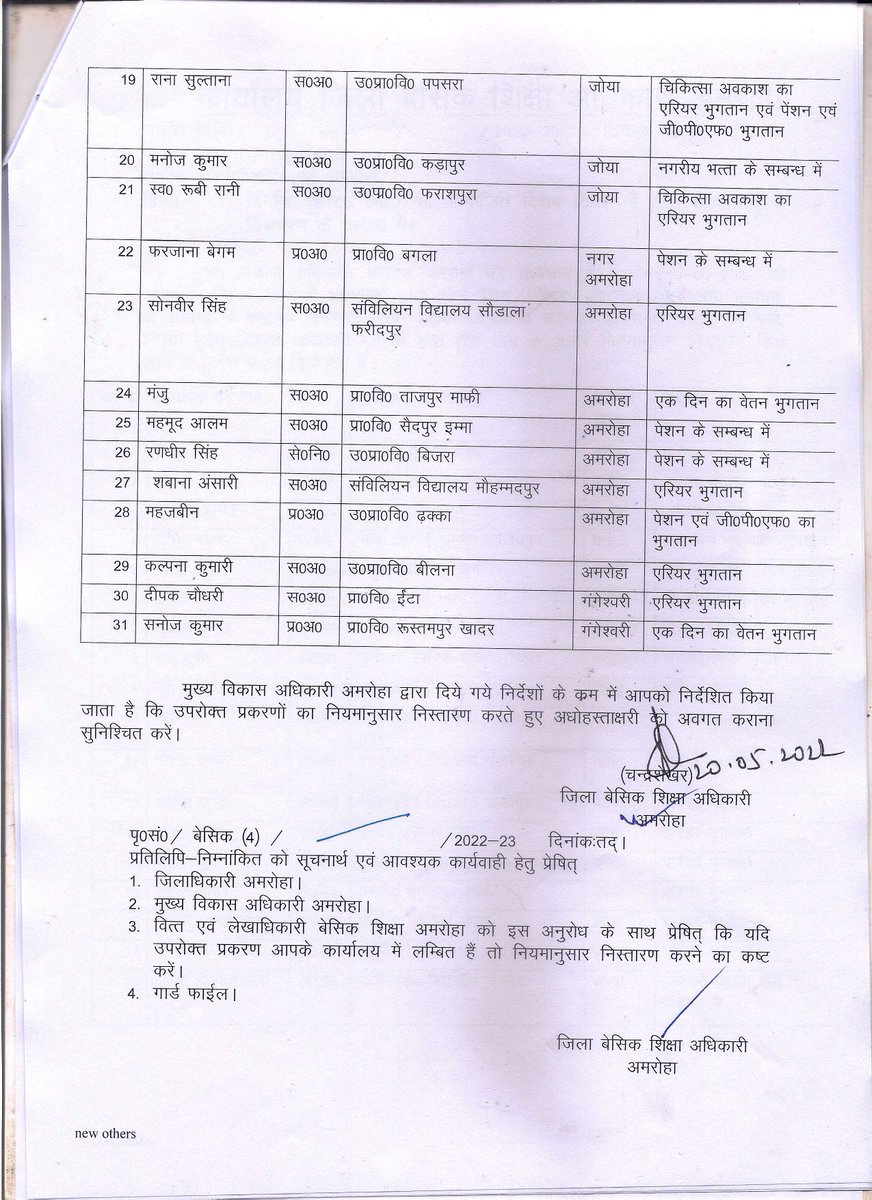 19 राना सुल्ताना स0अ0 उ0प्रा0वि0 पपसरा जोया चिकित्सा अवकाश का
एरियर भुगतान एवं पेंशन एवं
जी0पी0एफ0 भुगतान
20 मनोज कुमार स0अ0 उ0प्रा0वि0 कड़ापुर जोया नगरीय भत्ता के सम्बन्ध में
21 स्व0 रूबी रानी स0अ0 उ0प्रा0वि0 फराशपुरा जोया चिकित्सा अवकाश का
एरियर भुगतान
22 फरजाना बेगम प्र0अ0 प्रा0वि0 बगला नगर पेशन के सम्बन्ध में
अमरोहा
23 सोनवीर सिंह स0अ0 संविलियन विद्यालय सौडाला अमरोहा एरियर भुगतान
फरीदपुर
24 मंजु स0अ0 प्रा0वि0 ताजपुर माफी अमरोहा एक दिन का वेतन भुगतान
25 महमूद आलम स0अ0 प्रा0वि0 सैदपुर इम्मा अमरोहा पेशन के सम्बन्ध में
26 रणधीर सिंह से0नि0 उ0प्रा0वि0 बिजरा अमरोहा पेशन के सम्बन्ध में
27 शबाना अंसारी स0अ0 संविलियन विद्यालय मौहम्मदपुर अमरोहा एरियर भुगतान
28 महजबीन प्र0अ0 उ0प्रा0वि0 ढ़क्का अमरोहा पेशन एवं जी0पी0एफ0 का
भुगतान
29 कल्पना कुमारी स0अ0 उ0प्रा0वि0 बीलना अमरोहा एरियर भुगतान
30 दीपक चौधरी स0अ0 प्रा0वि0 ईंटा गंगेश्वरी एरियर भुगतान
31 सनोज कुमार प्र0अ0 प्रा0वि0 रूस्तमपुर खादर गंगेश्वरी एक दिन का वेतन भुगतान
मुख्य विकास अधिकारी अमरोहा द्वारा दिये गये निर्देशों के कम में आपको निर्देशित किया
जाता है कि उपरोक्त प्रकरणों का नियमानुसार निस्तारण करते हुए अधोहस्ताक्षरी को अवगत कराना
सुनिश्चित करें।
(चन्द्रशेखर) 20.05.2022
जिला बेसिक शिक्षा अधिकारी
अमरोहा
पृ0सं0/ बेसिक (4) / /2022-23 दिनांकःतद्।
प्रतिलिपि-निम्नांकित को सूचनार्थ एवं आवश्यक कार्यवाही हेतु प्रेषित्
1. जिलाधिकारी अमरोहा।
2. मुख्य विकास अधिकारी अमरोहा।
3. वित्त एवं लेखाधिकारी बेसिक शिक्षा अमरोहा को इस अनुरोध के साथ प्रेषित् कि यदि
उपरोक्त प्रकरण आपके कार्यालय में लम्बित हैं तो नियमानुसार निस्तारण करने का कष्ट
करें।
4. गार्ड फाईल।
जिला बेसिक शिक्षा अधिकारी
अमरोहा
new others